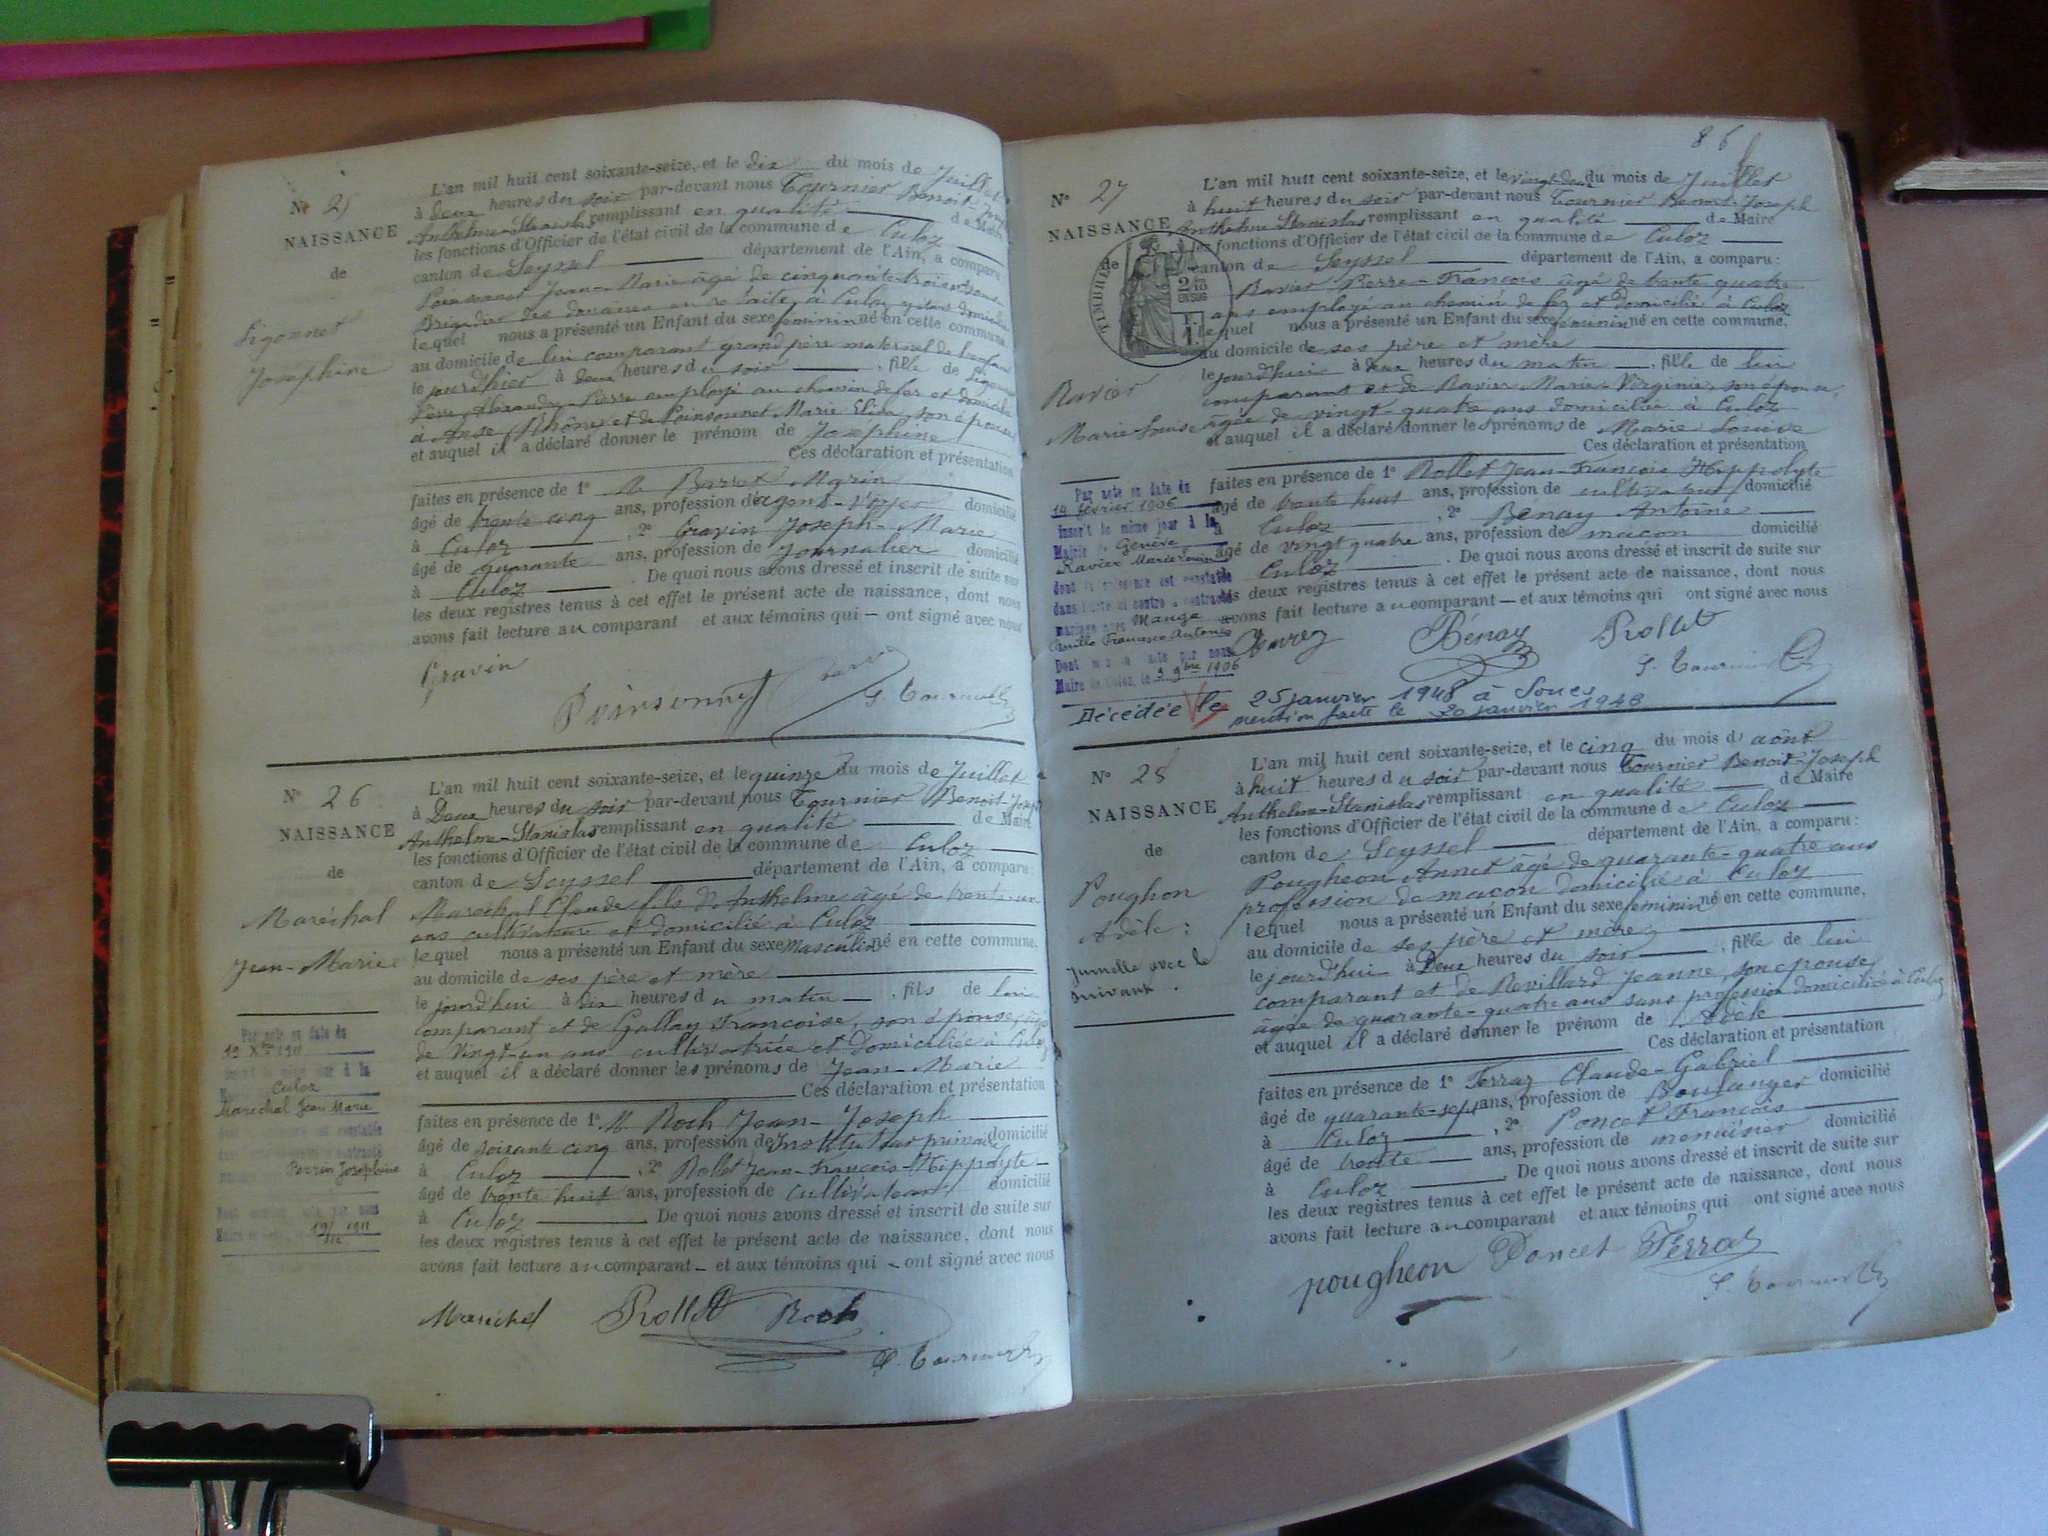 N° 25
NAISSANCE
de
Figonnet
Josephine
L'an mil huit cent soixante-seize, et le dix du mois de Juillet
à Deux heures du soir par-devant nous Tournier Benoit-Joseph
Anthelme-Stanislas remplissant en qualité de Maire
les fonctions d'Officier de l'état civil de la commune de Culoz
canton de Seyssel département de l'Ain, a comparu
Poinsonnet Jean-Marie âgé de cinquante-trois
Brigadier des douanes en retraite à Culoz
lequel nous a présenté un Enfant du sexe féminin né en cette commune,
au domicile de lui comparant grand père maternel de l'enfant
le jourd'hier à deux heures du soir, fille de
Alexandre-Pierre employé au chemin de fer et domicilié
à Anse (Rhône) et de Poinsonnet Marie Elisa, son épouse
et auquel il a déclaré donner le prénom de Josephine
Ces déclaration et présentation
faites en présence de 1° M. Barret Marin
âgé de trente cinq ans, profession d'agent-Voyer domicilié
à Culoz, 2° Gravin Joseph-Marie
âgé de quarante ans, profession de Journalier domicilié
à Culoz. De quoi nous avons dressé et inscrit de suite sur
les deux registres tenus à cet effet le présent acte de naissance, dont nous
avons fait lecture au comparant et aux témoins qui – ont signé avec nous
Gravin
Poinsonnet
S. Tournier
N° 26
NAISSANCE
de
Maréchal
Jean-Marie
L'an mil huit cent soixante-seize, et le quinze du mois de Juillet
à Deux heures du soir par-devant nous Tournier Benoit-Joseph
Anthelme-Stanislas remplissant en qualité de Maire
les fonctions d'Officier de l'état civil de la commune de Culoz
canton de Seyssel département de l'Ain, a comparu:
Maréchal Claude fils d'Anthelme âgé de trente-un
ans cultivateur et domicilié à Culoz
lequel nous a présenté un Enfant du sexe Masculin né en cette commune.
au domicile de ses père et mère
le jourd'hui à dix heures du matin, fils de lui
comparant et de Gallay Françoise, son épouse, âgée
de Vingt-un ans cultivatrice et domiciliée à Culoz
et auquel il a déclaré donner les prénoms de Jean-Marie
Ces déclaration et présentation
faites en présence de 1° M. Roch Jean-Joseph
âgé de soixante cinq ans, profession de Instituteur primaire domicilié
à Culoz, 2° Rollet Jean-François-Hippolyte
âgé de trente huit ans, profession de cultivateur domicilié
à Culoz De quoi nous avons dressé et inscrit de suite sur
les deux registres tenus à cet effet le présent acte de naissance, dont nous
avons fait lecture au comparant – et aux témoins qui – ont signé avec nous
Par acte en date du
19 Xbre 1911
Culoz
Maréchal Jean Marie
Perrin Josephine
19/12 1911
Maréchal Rollet Roch
S. Tournier
86
N° 27
NAISSANCE
de
TIMBRE
2/10 EN SUS
F. 1.
Ravier
Marie Louise
L'an mil huit cent soixante-seize, et le vingt-deux du mois de Juillet
à huit heures du soir par-devant nous Tournier Benoit-Joseph
Anthelme Stanislas remplissant en qualité de Maire
les fonctions d'Officier de l'état civil de la commune de Culoz
canton de Seyssel département de l'Ain, a comparu:
Ravier Pierre-François âgé de trente quatre
ans employé au chemin de fer et domicilié à Culoz
lequel nous a présenté un Enfant du sexe féminin né en cette commune,
au domicile de ses père et mère
le jourd'hui à deux heures du matin, fille de lui
comparant et de Ravier Marie-Virginie, son épouse,
âgée de vingt-quatre ans domiciliée à Culoz
et auquel il a déclaré donner les prénoms de Marie Louise
Ces déclaration et présentation
faites en présence de 1° Rollet Jean-François Hippolyte
âgé de trente huit ans, profession de cultivateur domicilié
à Culoz, 2° Bénay Antoine
âgé de vingt quatre ans, profession de maçon domicilié
à Culoz. De quoi nous avons dressé et inscrit de suite sur
les deux registres tenus à cet effet le présent acte de naissance, dont nous
avons fait lecture au comparant – et aux témoins qui ont signé avec nous
Par acte en date du
14 février 1906
inscrit le même jour à la
Mairie de Genève
Ravier Marie Louise
dont la naissance est constatée
dans l'acte ci contre a contracté
mariage avec Mange
Camille François Antoine
Dont mention acte par nous
Maire de Culoz, le 3 9bre 1906
Bénay Rollet
S. Tournier
Décédée le 25 janvier 1948 à
mention faite le 30 janvier 1948
N° 28
NAISSANCE
de
Poughon
Adèle:
Jumelle avec le
suivant.
L'an mil huit cent soixante-seize, et le cinq du mois d'août
à huit heures du soir par-devant nous Tournier Benoit-Joseph
Anthelme-Stanislas remplissant en qualité de Maire
les fonctions d'Officier de l'état civil de la commune de Culoz
canton de Seyssel département de l'Ain, a comparu:
Pougheon Annet âgé de quarante-quatre ans
profession de maçon domicilié à Culoz
lequel nous a présenté un Enfant du sexe féminin né en cette commune,
au domicile de ses père et mère
le jourd'hui à Deux heures du soir, fille de lui
comparant et de Revillard Jeanne, son épouse,
âgée de quarante-quatre ans sans profession domiciliée à Culoz
et auquel il a déclaré donner le prénom de Adèle
Ces déclaration et présentation
faites en présence de 1° Ferraz Claude-Gabriel
âgé de quarante-sept ans, profession de Boulanger domicilié
à Culoz, 2° Poncet François
âgé de trente ans, profession de menuisier domicilié
à Culoz. De quoi nous avons dressé et inscrit de suite sur
les deux registres tenus à cet effet le présent acte de naissance, dont nous
avons fait lecture au comparant et aux témoins qui ont signé avec nous
pougheon Poncet Ferraz
S. Tournier